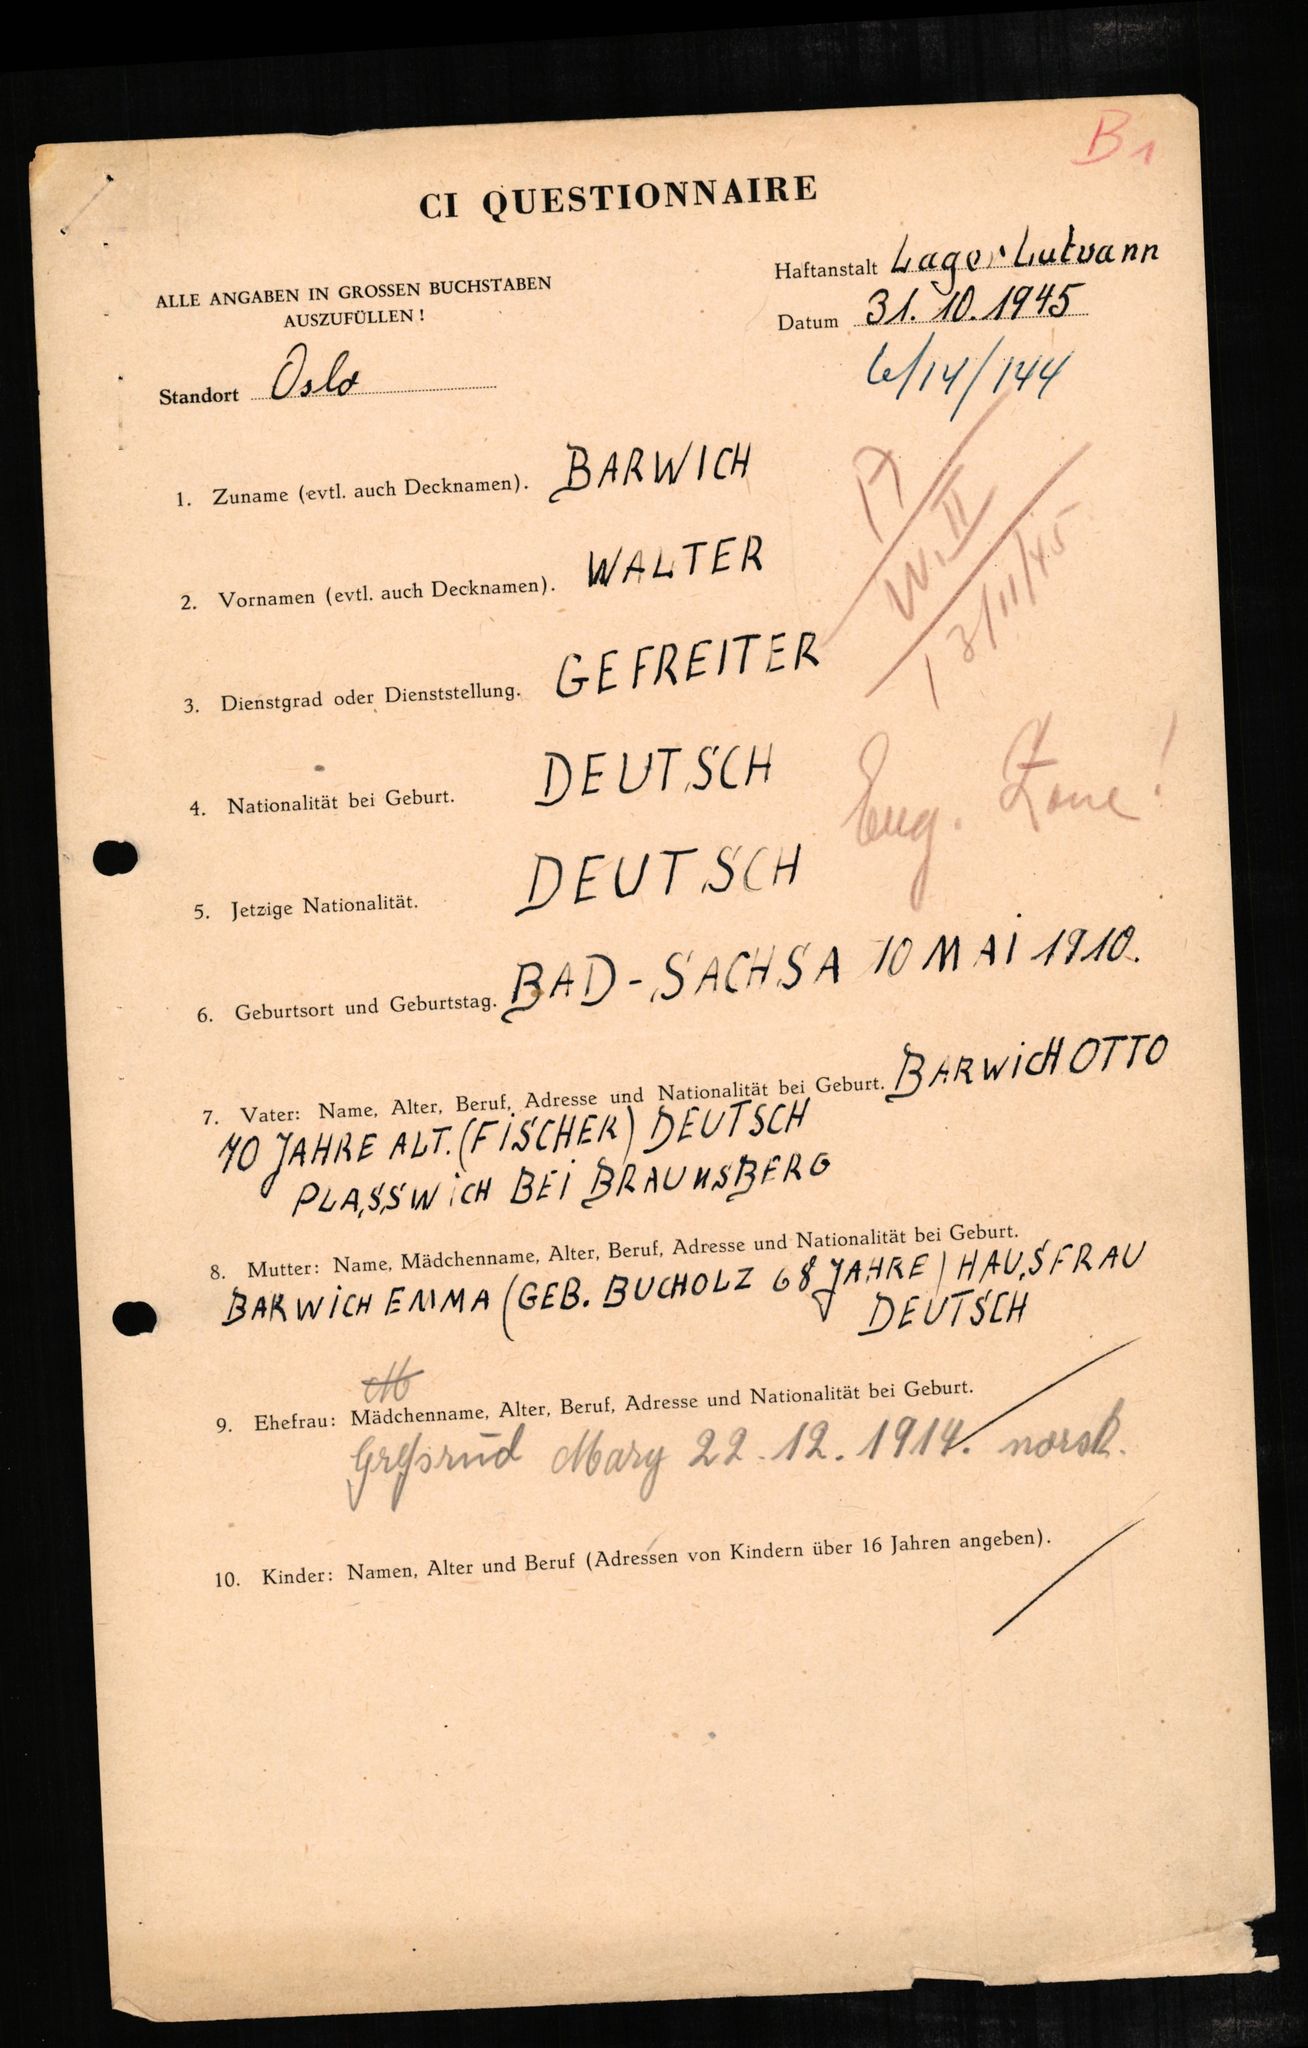 B 1
CI QUESTIONNAIRE
Haftanstalt Lager Lutvann
ALLE ANGABEN IN GROSSEN BUCHSTABEN
AUSZUFÜLLEN!
Datum 31.10.1945
Standort Oslo
6/14/144
1. Zuname (evtl. auch Decknamen). BARWICH
A
W.II
13/11/45
2. Vornamen (evtl. auch Decknamen). WALTER
3. Dienstgrad oder Dienststellung. GEFREITER
4. Nationalität bei Geburt. DEUTSCH
Eng. Zone!
5. Jetzige Nationalität. DEUTSCH
6. Geburtsort und Geburtstag. BAD-SACHSA 10 MAI 1910.
7. Vater: Name, Alter, Beruf, Adresse und Nationalität bei Geburt. BARWICH OTTO
70 JAHRE ALT. (FISCHER) DEUTSCH
PLASSWICH BEI BRAUNSBERG
8. Mutter: Name, Mädchenname, Alter, Beruf, Adresse und Nationalität bei Geburt.
BARWICH EMMA (GEB. BUCHOLZ 68 JAHRE) HAUSFRAU
DEUTSCH
M
9. Ehefrau: Mädchenname, Alter, Beruf, Adresse und Nationalität bei Geburt.
Mary 22.12.1914. norsk.
10. Kinder: Namen, Alter und Beruf (Adressen von Kindern über 16 Jahren angeben).